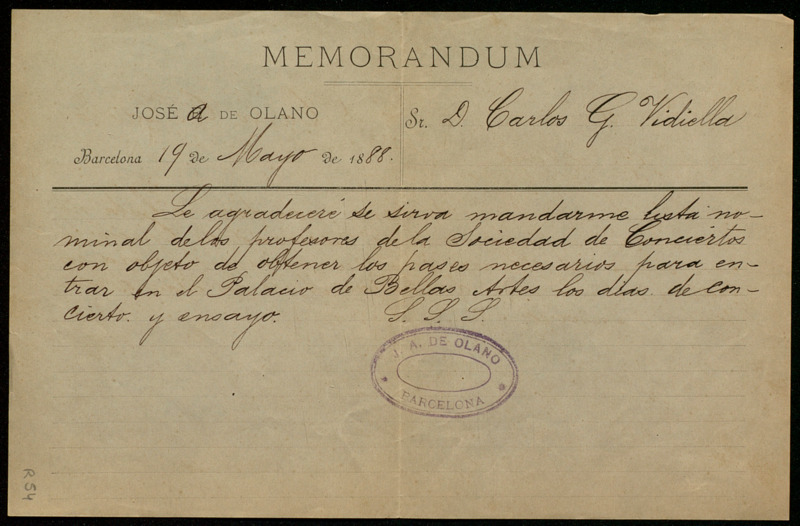 MEMORANDUM
JOSÉ A DE OLANO
Sr. D. Carlos G. Vidiella
Barcelona 19 de Mayo de 1888.
Le agradeceré se sirva mandarme lista no-
minal delos profesores dela Sociedad de Conciertos
con objeto de obtener los pases necesarios para en-
trar en el Palacio de Bellas Artes los dias de con-
cierto y ensayo. S. S. S.
J. A. DE OLANO
BARCELONA
R 54